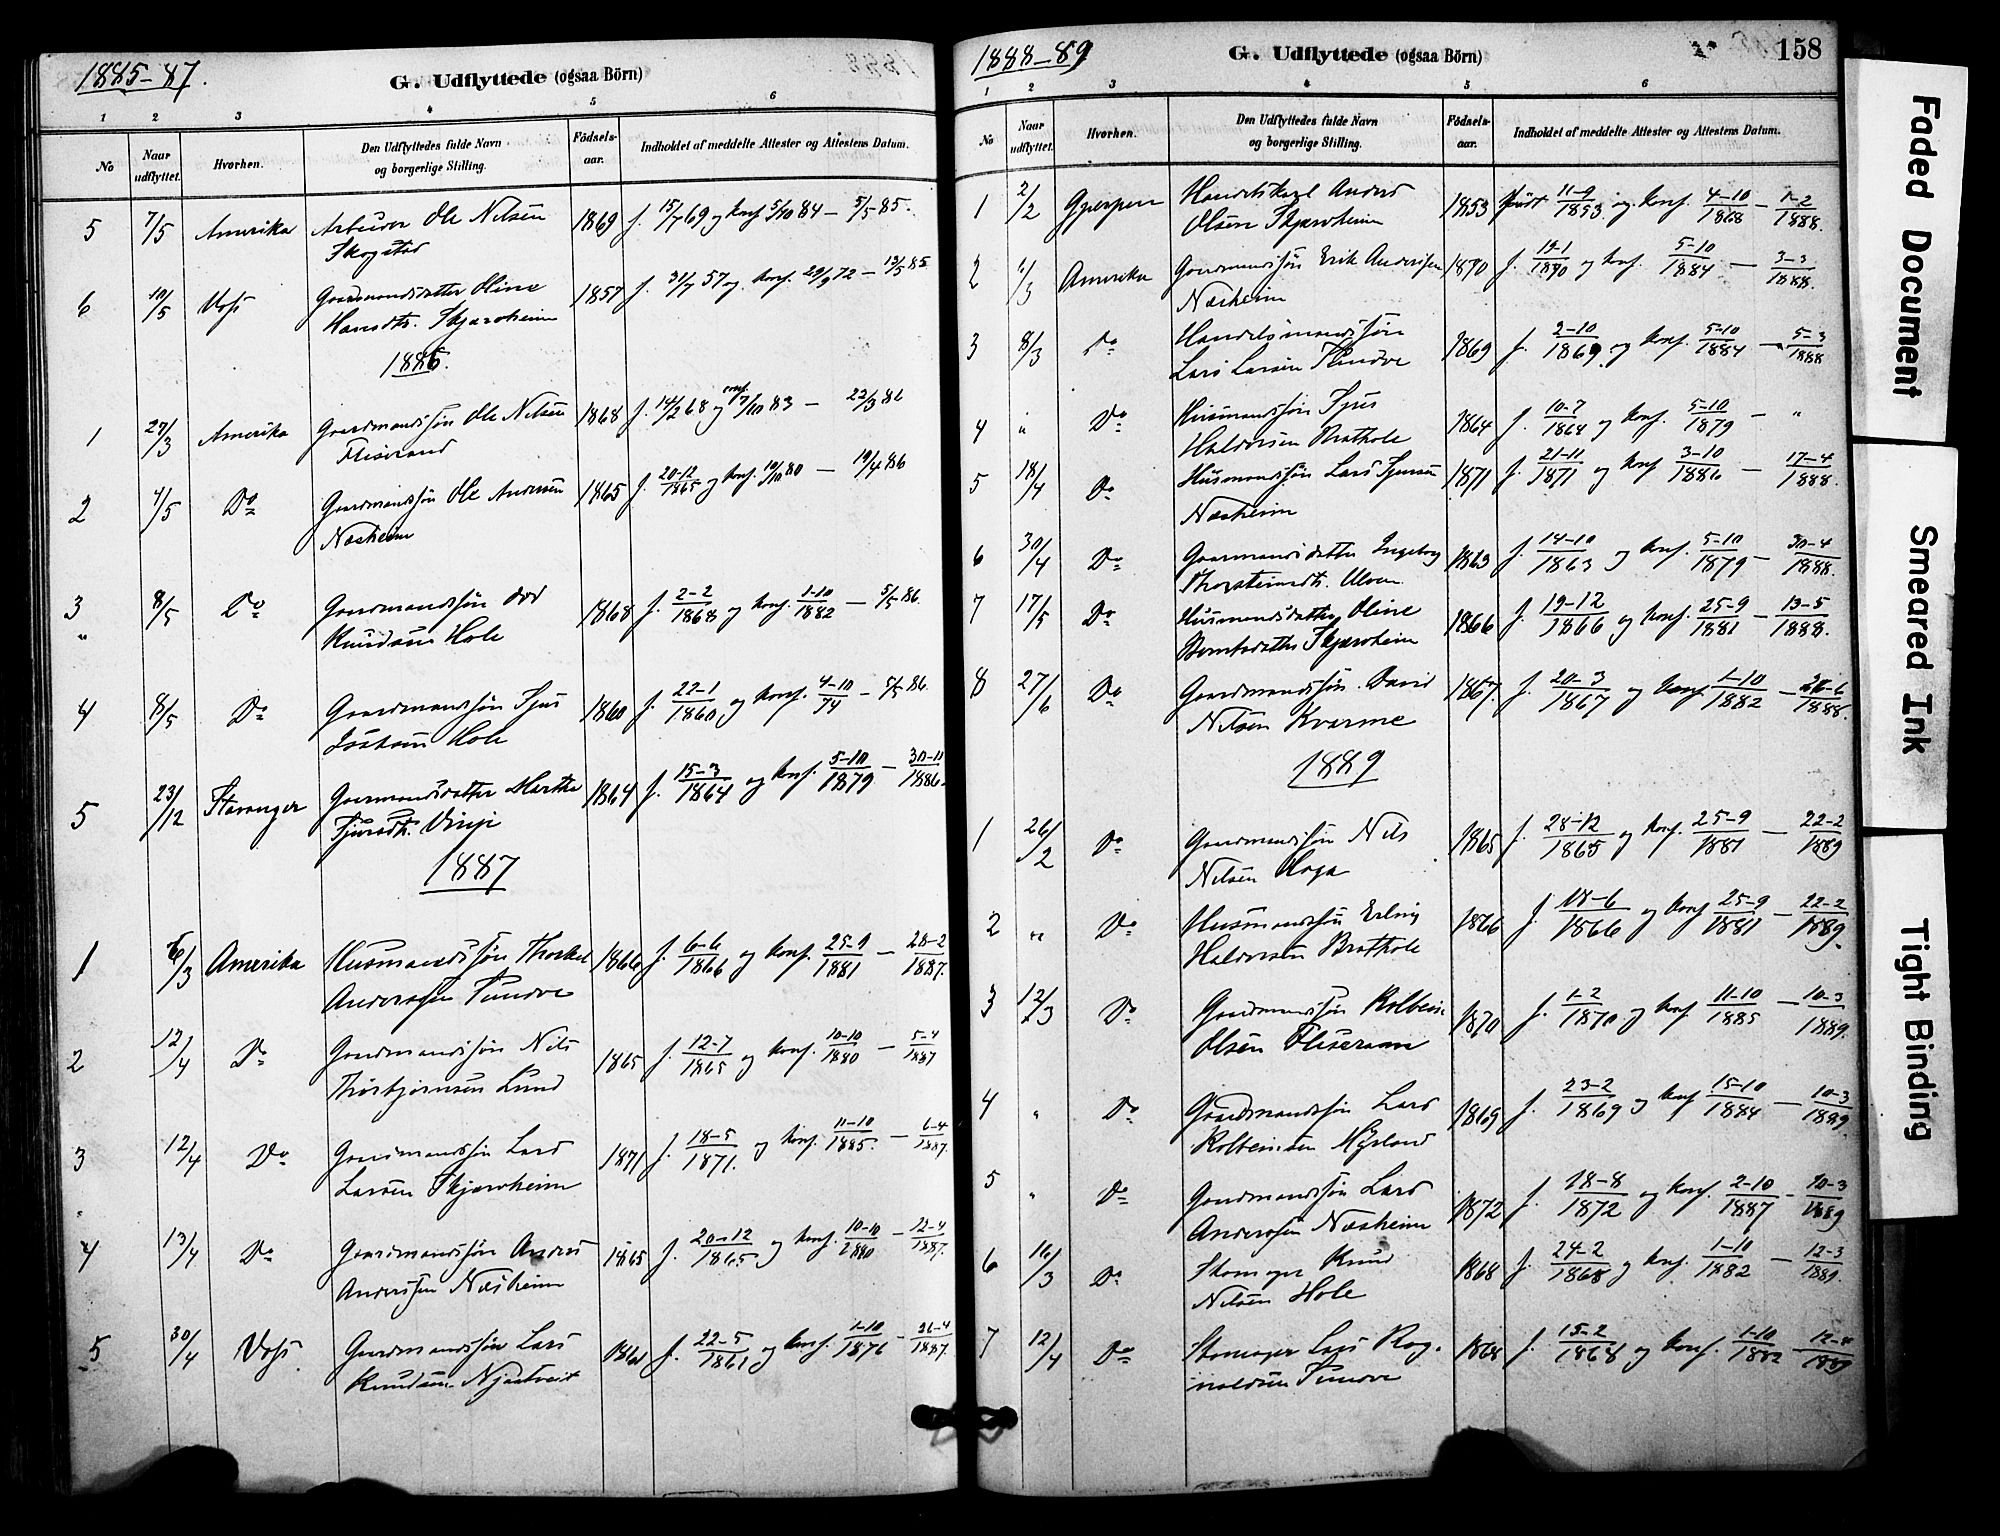 1885-87.
G. Udflyttede (ogsaa Börn)
1 2 3 4 5 6
No Naar udflyttet. Hvorhen. Den Udflyttedes fulde Navn og borgerlige Stilling. Födsels-aar. Indholdet af meddelte Attester og Attestens Datum.
5 7/5 Amerika Arbeider Ole Nilsen 1869 f. 15/7 69 og konf 5/10 84 - 5/5 85.
Skogstad
6 10/5 Voss Gaardmandsdatter Oline 1857 f. 31/7 57 og konf. 29/9 72 - 12/5 85
Skjærvheim
1886.
1 27/3 Amerika Gaardmandssøn Ole Nilsen 1868 f. 14/2 68 og conf. 7/10 83 - 22/3 86
Fliseraand
2 7/5 Do Gaardmandssøn Ole Andersen 1865 f. 20-12/1865 og konf. 10/10 80 - 19/4 86
Næsheim
3 8/5 Do Gaardmandssøn Odd 1868 f. 2-2/1868 og konf. 1-10/1882 - 5/5 86.
" Knudsen Hole
4 8/5 Do Gaardmandssøn Sjur 1860 f. 22-1/1860 og konf. 4-10/74 - 5/5 86.
Hole
5 23/12 Stavanger Gaarmandsdatter Martha 1864 f. 15-3/1864 og konf. 5-10/1879 - 30-11/1886
Sjursdt. Vinje
1887
1 6/3 Amerika Husmandssøn Thorkel 1866 f. 6-6/1866 og konf. 25-9/1881 - 28-2/1887.
Anderssen Tundve
2 12/4 Do Gaardmandssøn Nils 1865 f. 12-7/1865 og konf. 10-10/1880 - 5-4/1887
Thorbjørnsen Lund
3 12/4 Do Gaardmandssøn Lars 1871 f. 18-5/1871. og konf. 11-10/1885. - 6-4/1887.
Larsen Skjærvheim
4 13/4 Do Gaardmandssøn Anders 1865 f. 20-12/1865 og konf. 10-10/1880 - 12-4/1887.
Anderssen Næsheim
5 30/4 Voss Gaardmandssøn Lars 1861 f. 22-5/1861 og konf. 1-10/1876 - 26-4/1887.
Knudsen Njaastveit
1888-89
G. Udflyttede (ogsaa Börn)
158
1 2 3 4 5 6
No Naar udflyttet. Hvorhen. Den Udflyttedes fulde Navn og borgerlige Stilling. Födsels-aar. Indholdet af meddelte Attester og Attestens Datum.
1 2/2 Gjerpen Handelskarl Anders 1853 født 11-9/1853. og konf. 4-10/1868 - 1-2/1888.
Olsen Skjærvheim
2 1/3 Amerika Gaardmandssøn Erik Anderssen 1870 f. 19-1/1870 og konf. 5-10/1884 - 3-3/1888.
Næsheim
3 8/3 Do Handelsmandssøn 1869 f. 2-10/1869. og konf. 5-10/1884 - 5-3/1888
Lars Larsen Tundve
4 " Do Husmandssøn Sjur 1864 f. 10-7/1864 og konf. 5-10/1879 - "
Haldorsen Brathole
5 18/4 Do Husmandssøn Lars Sjursen 1871 f. 21-11/1871 og konf 3-10/1886 - 17-4/1888.
Næsheim
6 30/4 Do Gaarmandsdatter Ingeborg 1863 f. 14-10/1863 og konf. 5-10/1879 - 30-4/1888.
Thorsteinsdt. Ulven
7 17/5 Do Husmandsdatter Oline 1866 f. 19-12/1866 og konf. 25-9/1881 - 13-5/1888.
Skjærvheim
8 27/6 Do Gaardmandssøn David 1867. f. 20-3/1867 og konf. 1-10/1882 - 26-6/1888.
Nilsen Kvarme
1889
1 26/2 Do Gaardmandssøn Nils 1865 f. 28-12/1865 og konf. 25-9/1881 - 22-2/1889
Nilsen Haga
2 " Do Husmandssøn Erling 1866 f. 18-6/1866 og konf 25-9/1881 - 22-2/1889.
Haldorsen Brathole
3 12/3 Do Gaardmandssøn Kolbein 1870 f. 1-2/1870 og konf 11-10/1885 - 10-3/1889.
Olsen Fliseraan
4 " Do Gaardmandssøn Lars 1869 f. 23-2/1869 og konf 15-10/1884 - 10-3/1889.
Kolbeinsen Myrland
5 " Do Gaardmandssøn Lars 1872 f. 28-8/1872 og konf. 2-10/1887 - 10-3/1889
Anderssen Næsheim
6 16/3 Do Skomager Knud 1868 f. 24-2/1868 og konf. 1-10/1882 - 12-3/1889.
Nilsen Hole
7 12/4 Do Skomager Lars Rog- 1868 f. 15-2/1868 og konf. 1-10/1882 - 12-4/1889
naldsen Tundve
Faded Document
Smeared Ink
Tight Binding